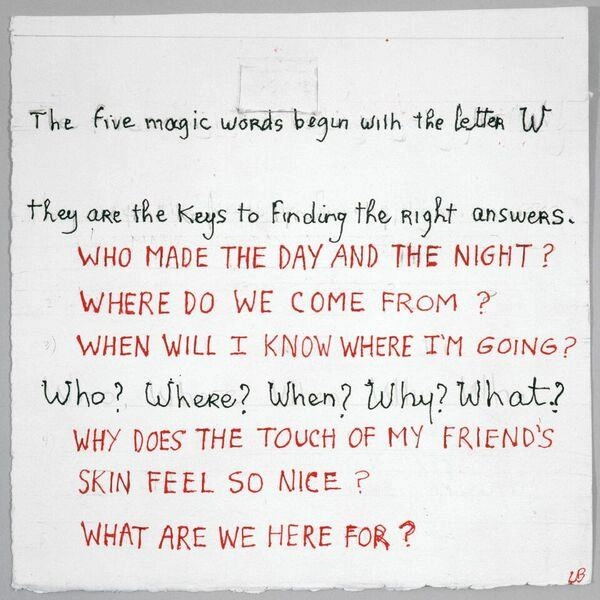 The five magic words begin with the letter W
They are the Keys to finding the right answers.
WHO MADE THE DAY AND THE NIGHT ?
WHERE DO WE COME FROM ?
WHEN WILL I KNOW WHERE I'M GOING?
Who? Where? When? Why? What?
WHY DOES THE TOUCH OF MY FRIEND'S
SKIN FEEL SO NICE ?
WHAT ARE WE HERE FOR ?
LB